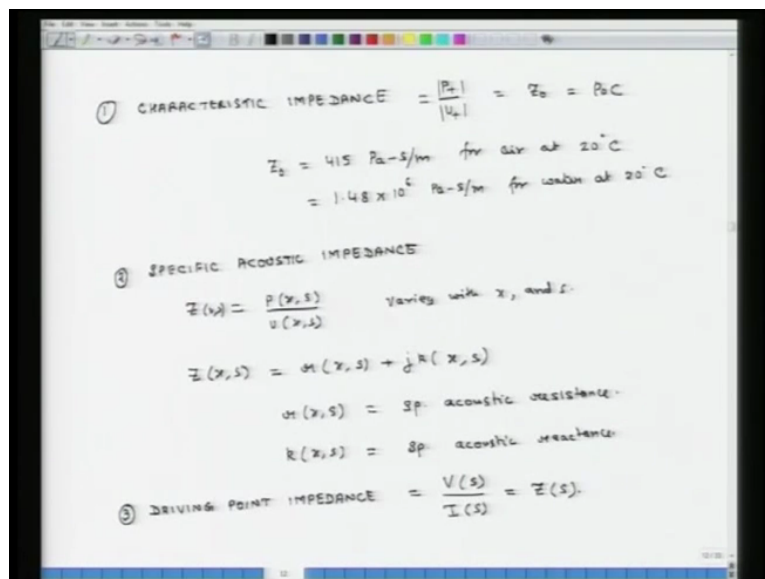 ① CHARACTERISTIC IMPEDANCE = |P+| / |U+| = Z₀ = P₀C
Z₀ = 415 Pa-S/m for air at 20°C
= 1.48 x 10⁶ Pa-S/m for water at 20°C
② SPECIFIC ACOUSTIC IMPEDANCE
Z(x,s) = P(x,s) / U(x,s) varies with x, and s.
Z(x,s) = r(x,s) + jk(x,s)
r(x,s) = sp. acoustic resistance.
k(x,s) = sp acoustic reactance.
③ DRIVING POINT IMPEDANCE = V(S) / I(S) = Z(S).